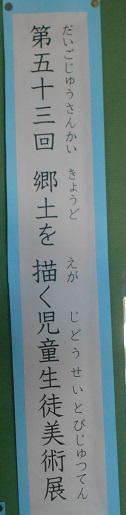 第五十三回 郷土を 描く児童生徒美術展
だいごじゅうさんかい きょうど えが じどうせいとびじゅつてん